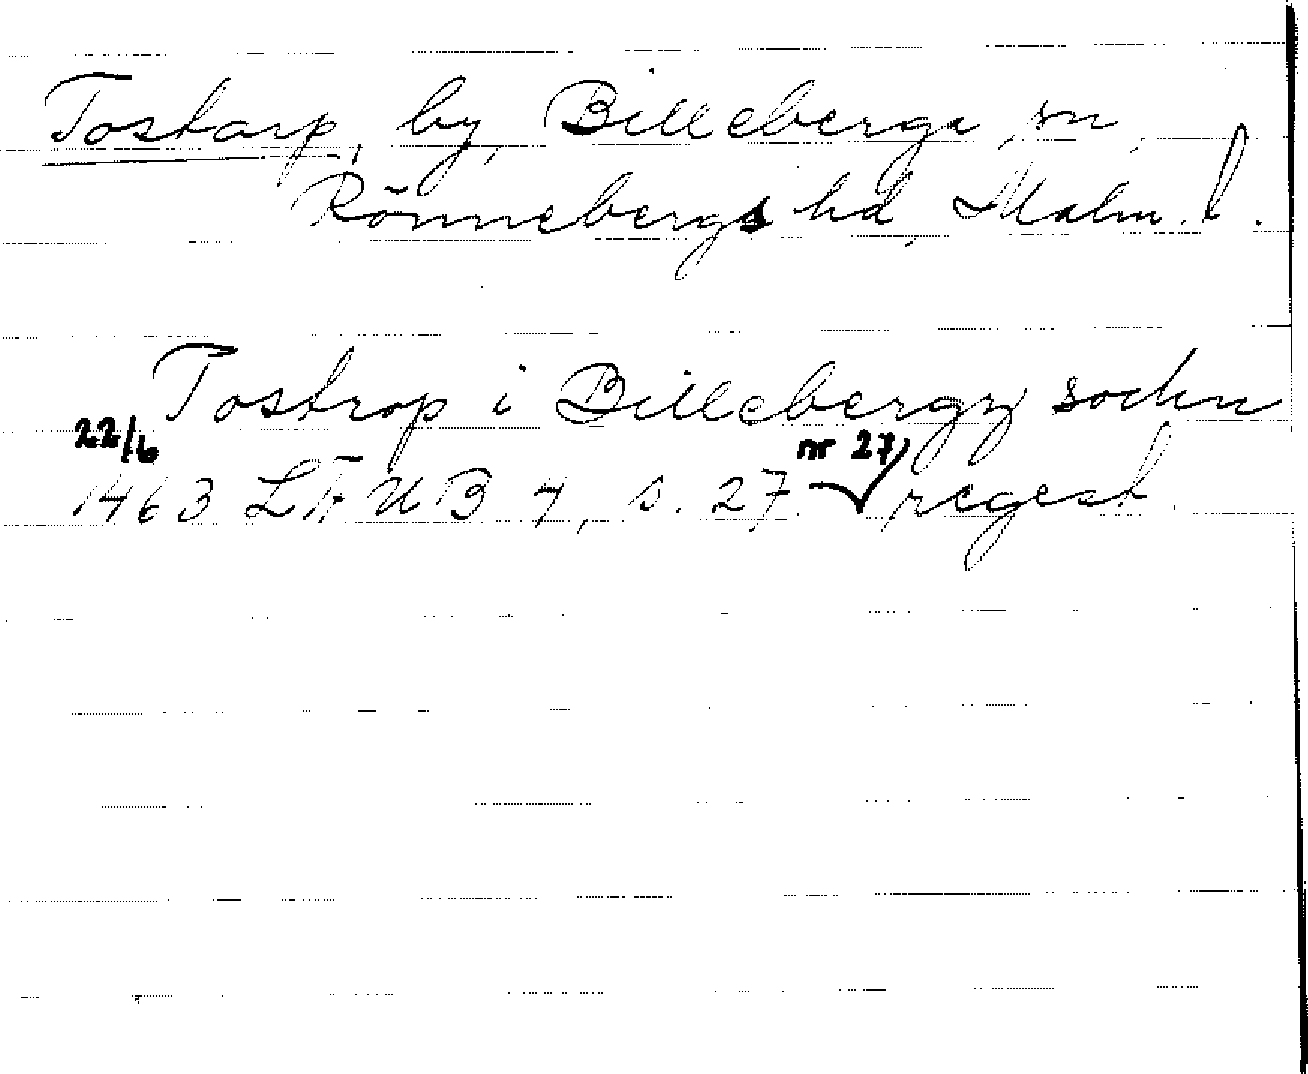 Tostarp, by, Billeberga sn,
Rönnebergs hd, Malm. l.
Tostrop i Billebergz sochn
22/6
1463 LÆUB 4, s. 27 nr 27 regest